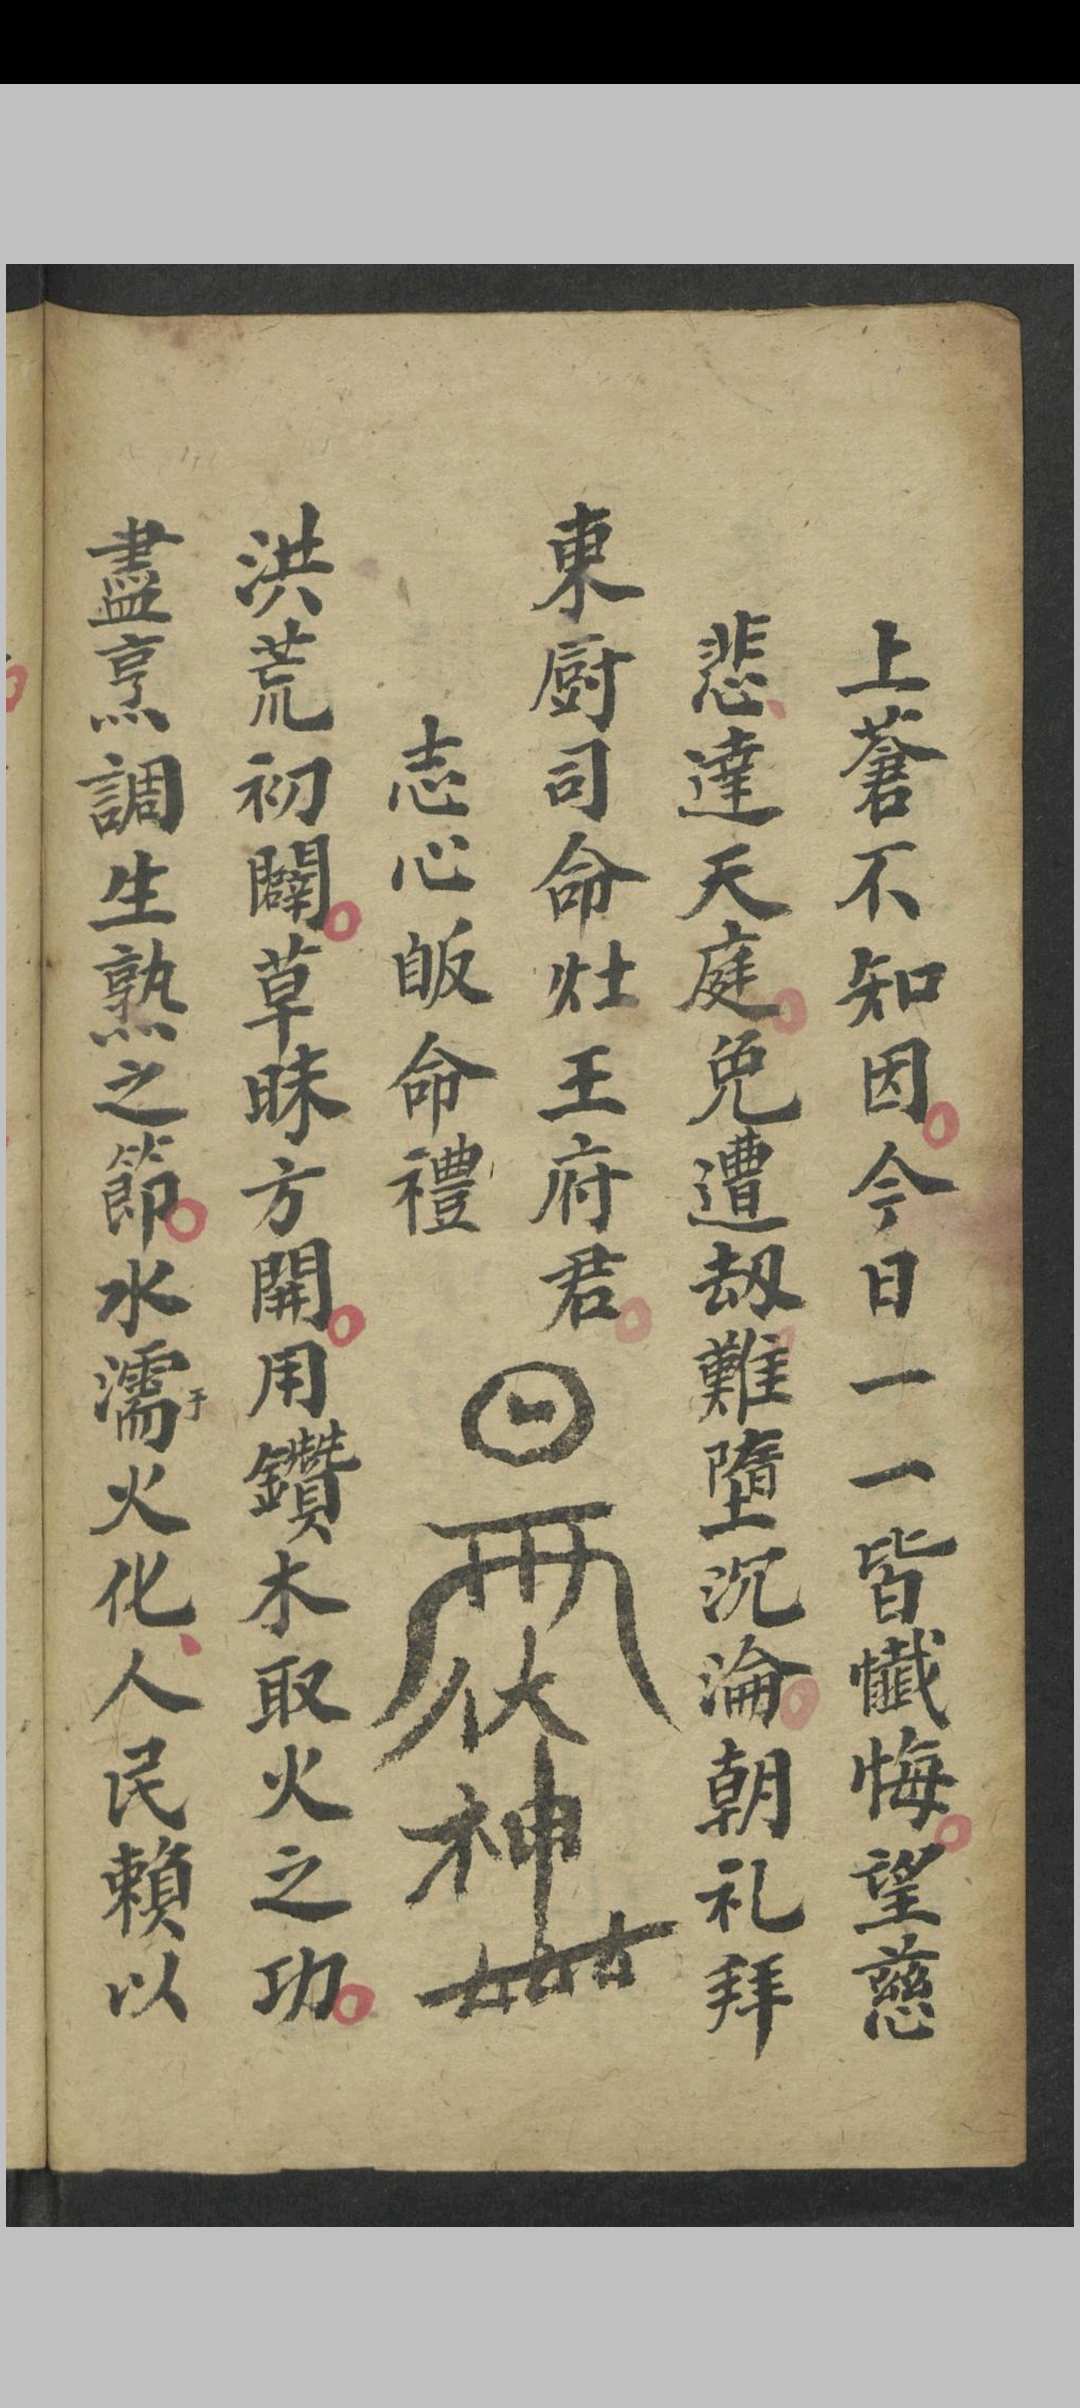 上蒼不知因今日一一皆懺悔望慈
悲達天庭免遭刼難墮沉淪朝礼拜
東厨司命灶王府君
志心皈命禮
洪荒初闢草昧方開用鑽木取火之功
盡烹調生熟之節水濡于火化人民賴以